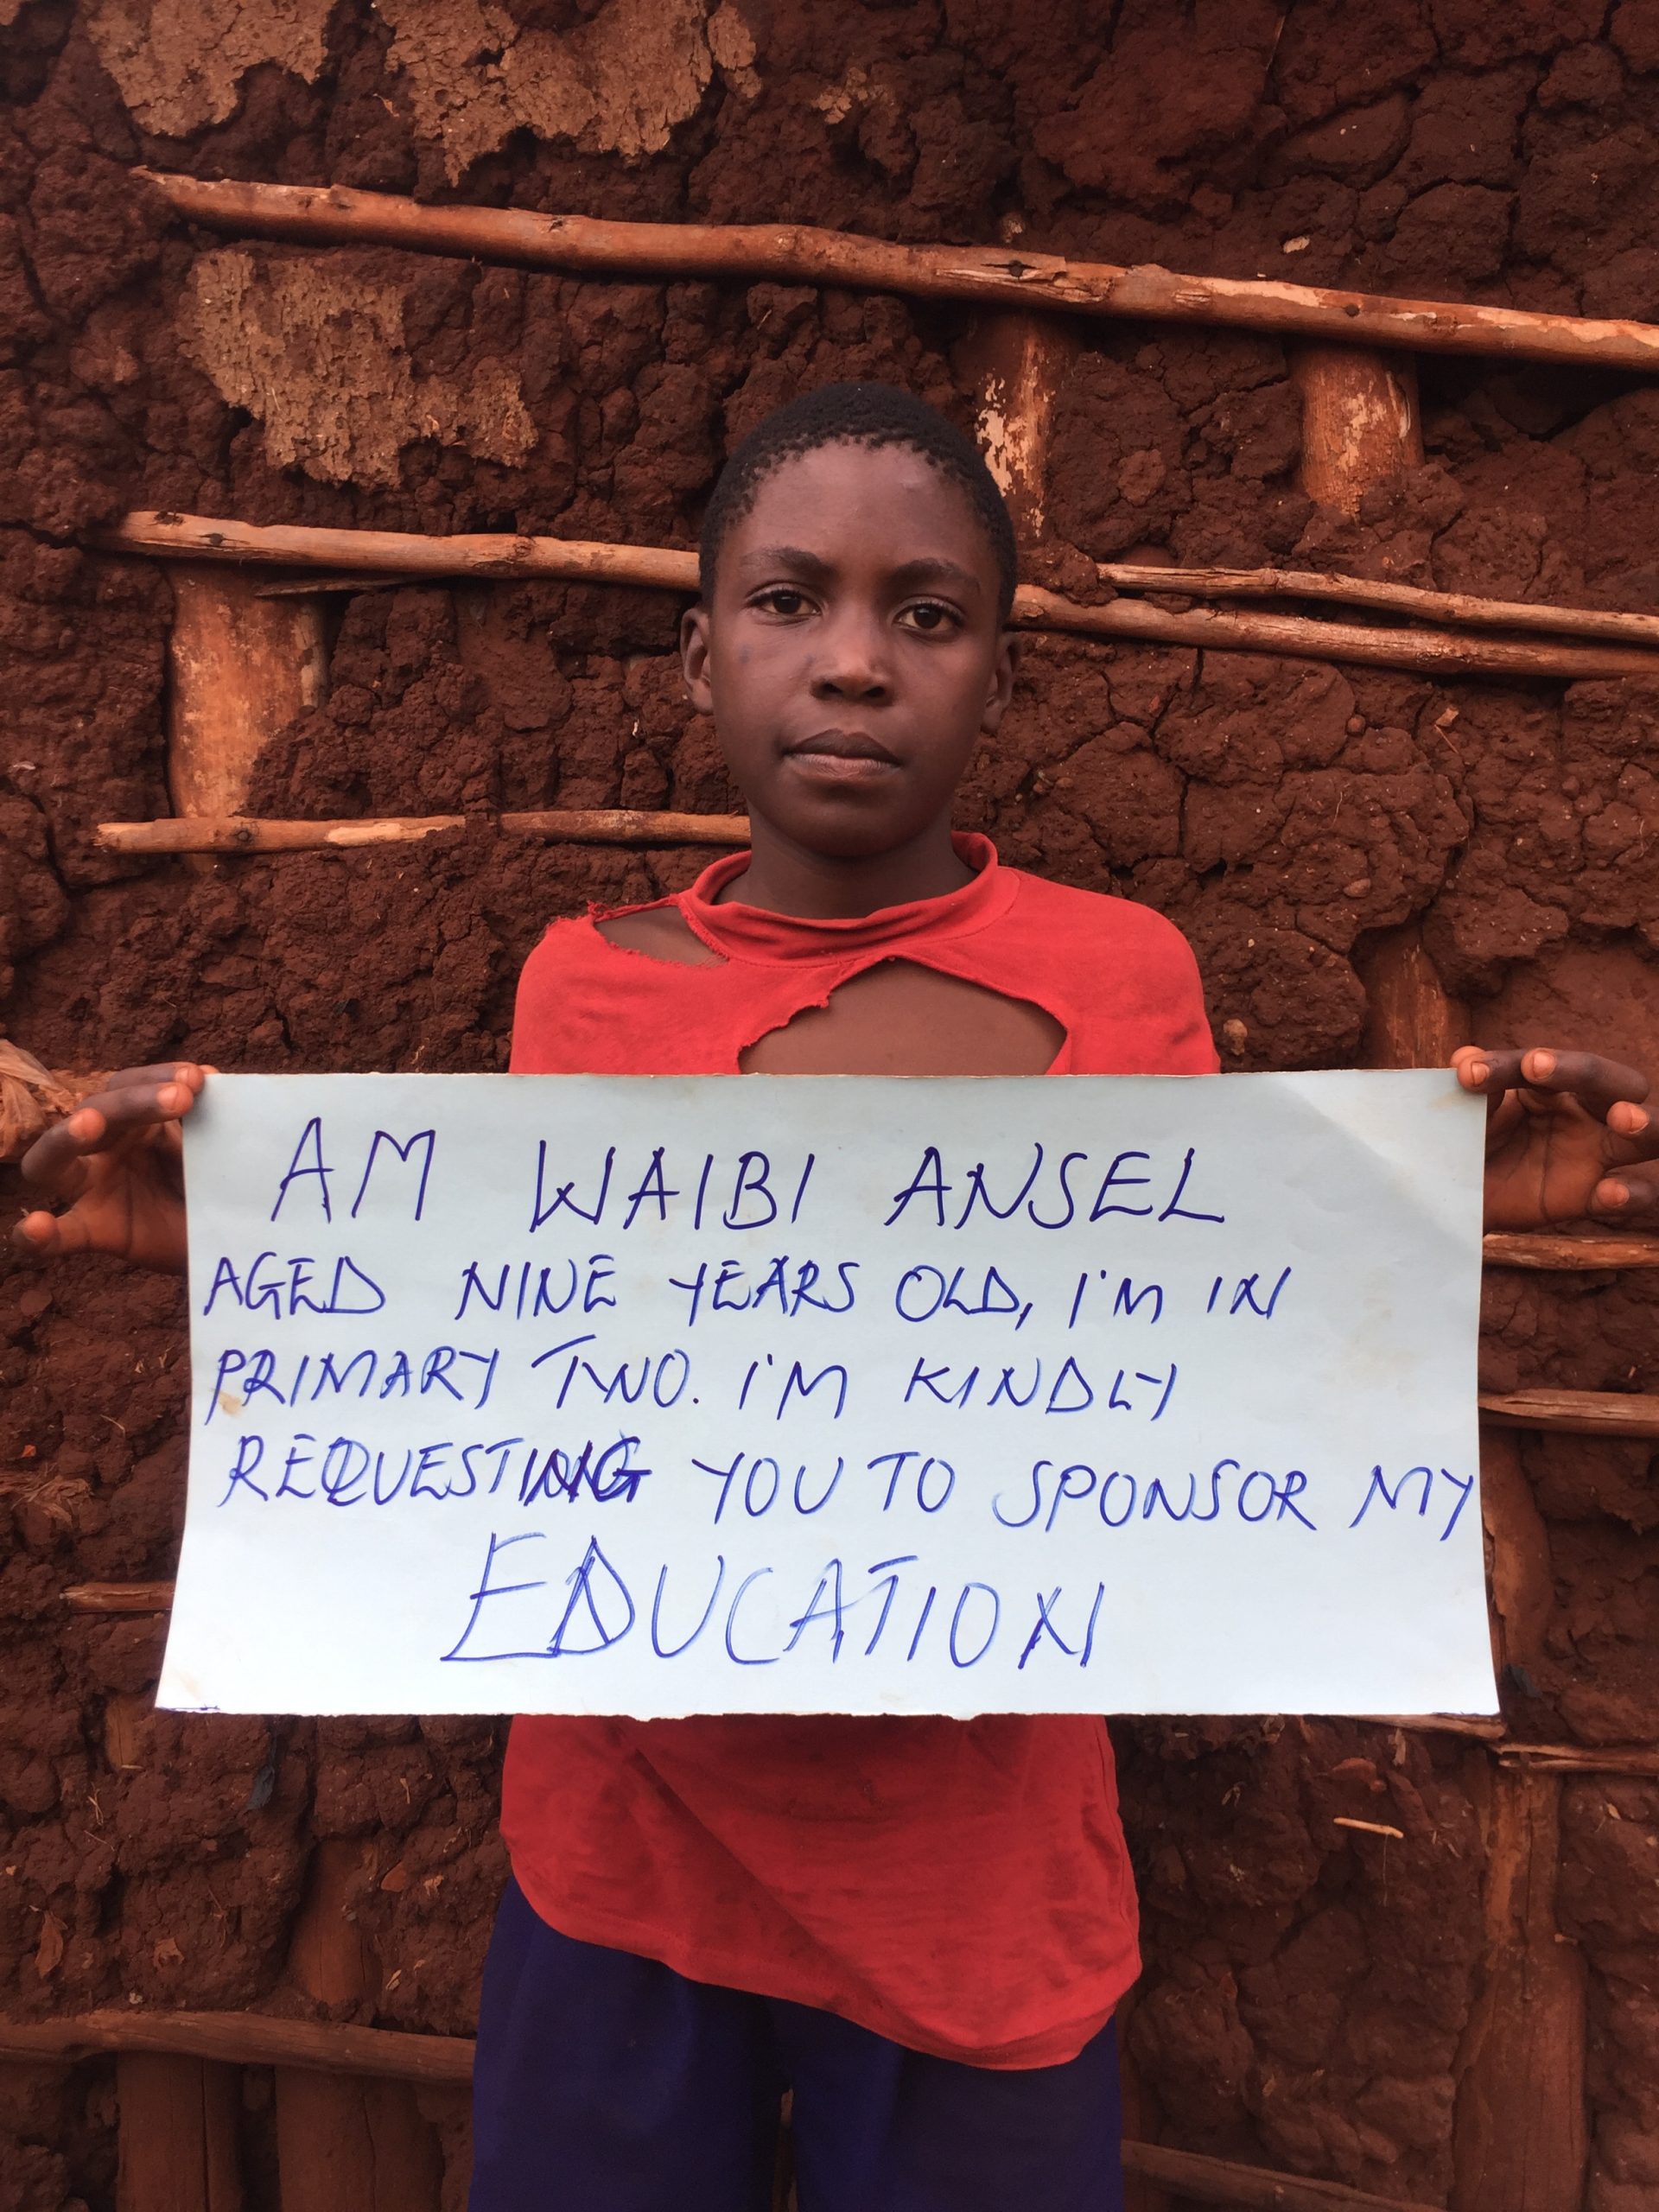 AM WAIBI ANSEL
AGED NINE YEARS OLD, I'M IN
PRIMARY TWO. I'M KINDLY
REQUESTING YOU TO SPONSOR MY
EDUCATION